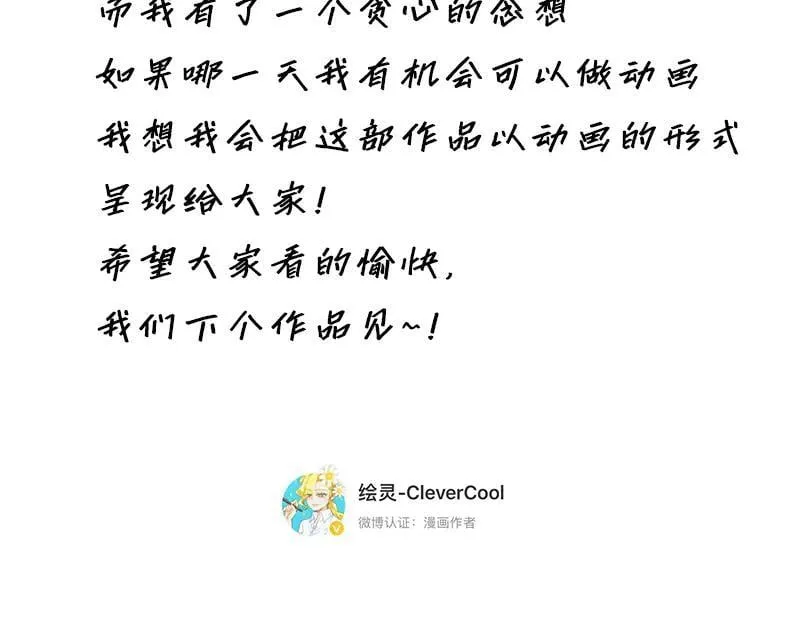 而我有了一个贪心的感想
如果哪一天我有机会可以做动画
我想我会把这部作品以动画的形式
呈现给大家!
希望大家看的愉快,
我们下个作品见~!
绘灵-CleverCool
微博认证：漫画作者